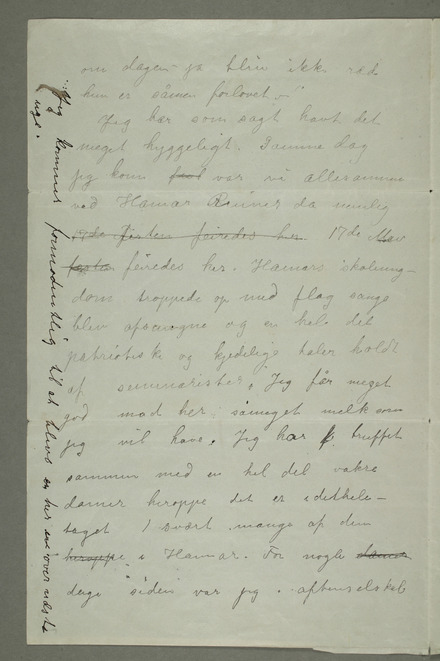 om dagen – ja bliv ikke ræd
hun er såmen forlovet –"
Jeg har som sagt havt det
meget hyggeligt. Samme dag
jeg kom var vi allesammen
ved Hamar Ruiner da nemlig
17de festen feiredes her 17de Mai
festen feiredes her. Hamars skoleung-
dom troppede op med flag sange
blev afsungne og en hel del
patriotisk og kjedelige taler holdt
af seminarister. Jeg får meget
god mad her såmeget melk som
jeg vil have. Jeg har truffet
sammen med en hel del vakre
damer heroppe det er idethele-
taget svært mange af dem
heroppe i Hamar. For nogle
dage siden var jeg i aftenselskab
Jeg kommer formodentlig til at blive her over næste
uge.